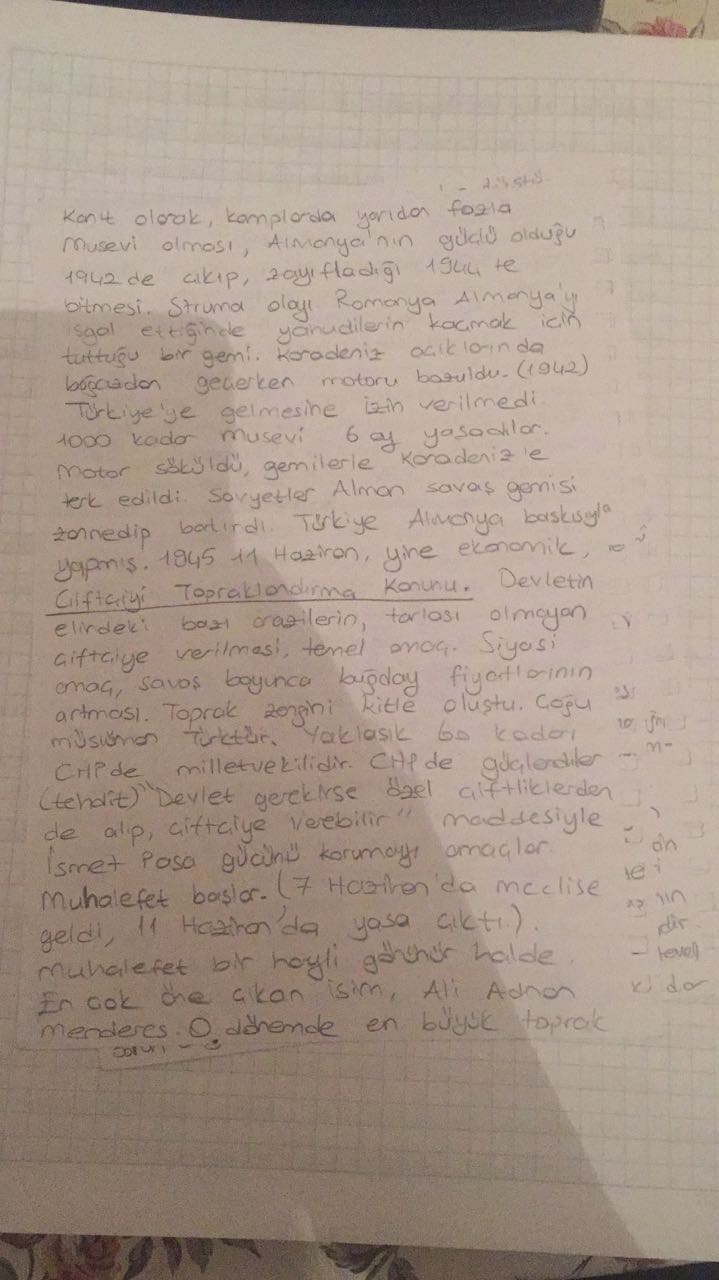 Kanıt olarak, kamplarda yarıdan fazla
Musevi olması, Almanya'nın güçlü olduğu
1942 de çıkıp, zayıfladığı 1944 te
bitmesi. Struma olayı Romanya Almanya'yı
işgal ettiğinde yahudilerin kaçmak için
tuttuğu bir gemi. Karadeniz açıklarında
boğazdan geçerken motoru bozuldu. (1942)
Türkiye'ye gelmesine izin verilmedi.
1000 kadar musevi 6 ay yaşadılar.
Motor söküldü, gemilerle Karadeniz'e
terk edildi. Sovyetler Alman savaş gemisi
zannedip batırdı. Türkiye Almanya baskısıyla
yapmış. 1945 11 Haziran, yine ekonomik,
Çiftçiyi Topraklandırma Kanunu. Devletin
elindeki bazı arazilerin, tarlası olmayan
çiftçiye verilmesi, temel amaç. Siyasi
amaç, savaş boyunca buğday fiyatlarının
artması. Toprak zengini kitle oluştu. Çoğu
müslüman Türktür. Yaklaşık 60 kadarı
CHPde milletvekilidir. CHPde güçlendiler
(tehdit) "Devlet gerekirse özel çiftliklerden
de alıp, çiftçiye verebilir" maddesiyle
İsmet Paşa gücünü korumayı amaçlar.
Muhalefet başlar. (7 Haziran'da meclise
geldi, 11 Haziran'da yasa çıktı.).
Muhalefet bir hayli görünür halde.
En çok öne çıkan isim, Ali Adnan
Menderes. O dönemde en büyük toprak